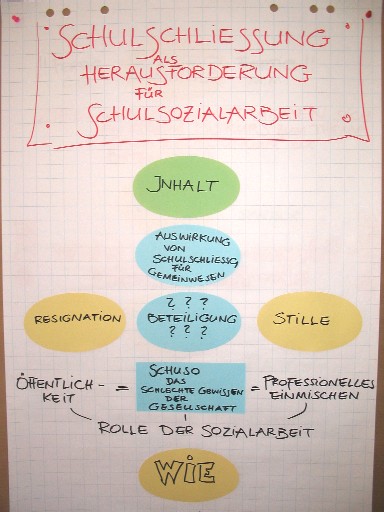 SCHULSCHLIESSUNG
ALS
HERAUSFORDERUNG
FÜR
SCHULSOZIALARBEIT
INHALT
AUSWIRKUNG
VON
SCHULSCHLIESSG.
FÜR
GEMEINWESEN
RESIGNATION
? ? ?
BETEILIGUNG
? ? ?
STILLE
ÖFFENTLICH-
KEIT
=
SCHUSO
DAS
SCHLECHTE GEWISSEN
DER
GESELLSCHAFT
=
PROFESSIONELLES
EINMISCHEN
ROLLE DER SOZIALARBEIT
WIE